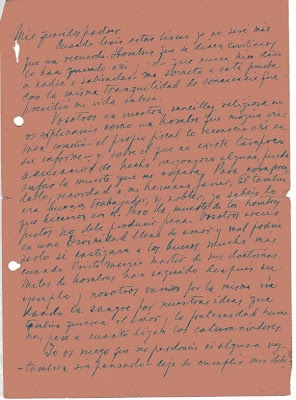 Mis queridos padres:
Cuando leais estas lineas ya no seré más
que un recuerdo. Hombres que se dicen cristianos
lo han querido así y yo que nunca hice daño
a nadie a sabiendas me someto a esta prueba
con la misma tranquilidad de conciencia que
presidió mi vida entera.
Vosotros en vuestra sencillez religiosa no
os explicareis como un hombre que ningún crí-
men cometió - el propio fiscal lo reconoció así en
su informe - y sobre el que no existe tampoco
acusación de hecho vergonzoso alguno pueda
sufrir la muerte que me
recordad a mi hermano Javier. El también
era bueno, trabajador, y noble; ya sabeis lo
que hicieron con él. No la muerte de los hombres
justos no debe producir pena. Vosotros creeis
en una Divinidad llena de amor y mal podría
serlo si castigara a los buenos, mucho mas
cuando Cristo murió mártir de sus doctrinas.
Miles de hombres han seguido después su
ejemplo y nosotros vamos por la misma vía
dando la sangre por nuestras ideas que
también quieren el amor y la fraternidad huma-
na, pese a cuanto digan los calumniadores.
Yo os ruego que me perdoneis si alguna vez
- también sin pensarlo - dejé de cumplir mis debe-